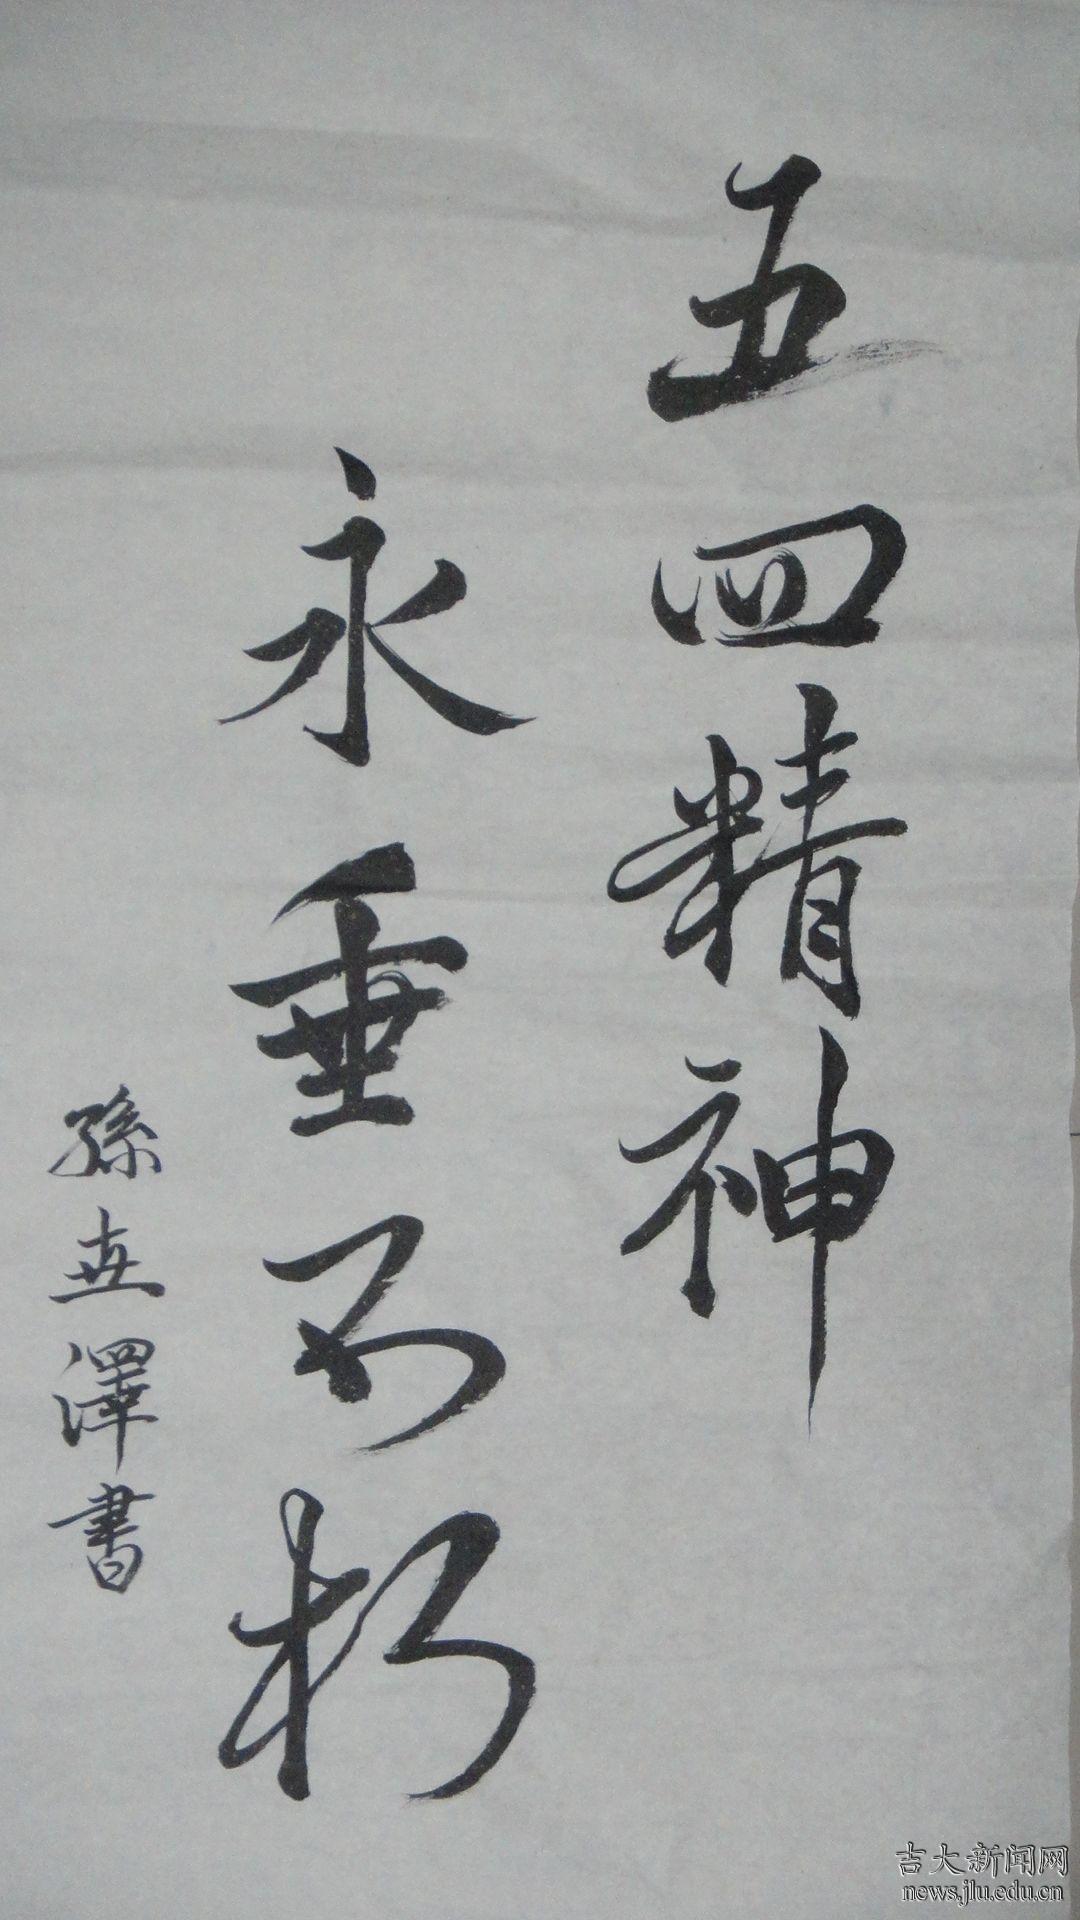 五四精神
永垂不朽
孫世澤書
吉大新闻网
news.jlu.edu.cn